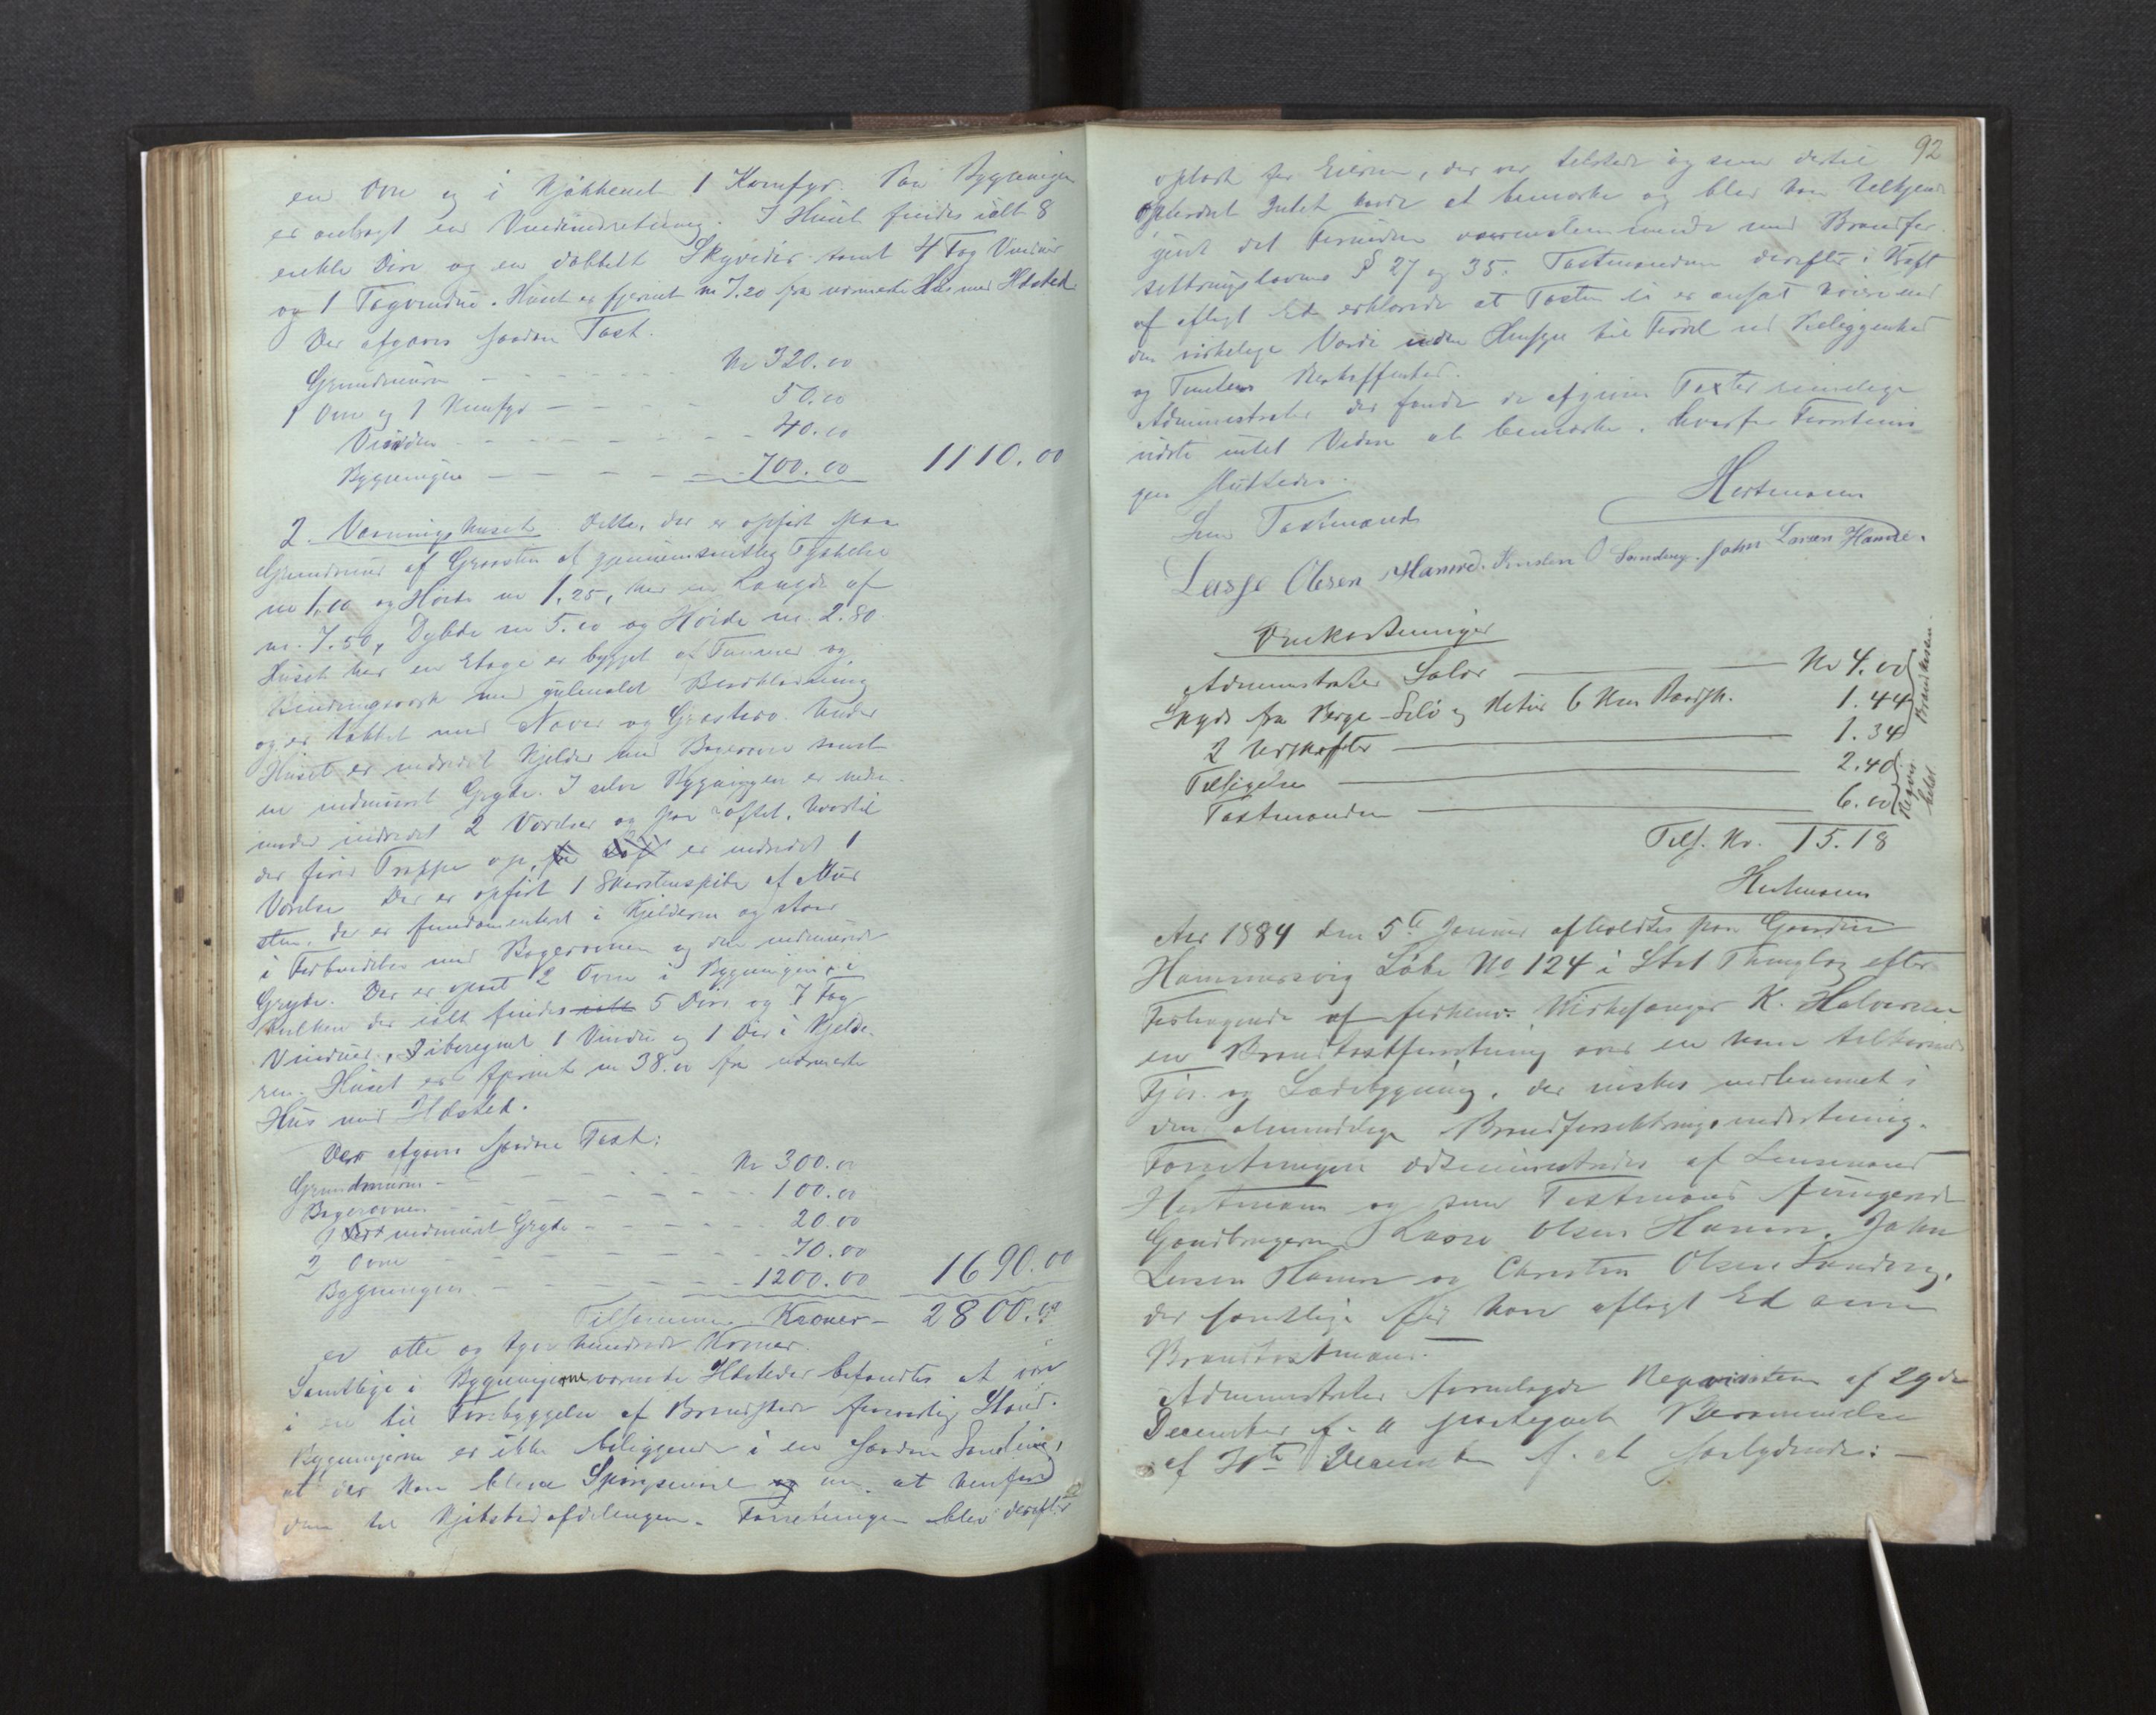 en Ovn og i Kjøkkenet 1 Komfyr. Paa Bygningen
er anbragt en Vindindretning. I Huset findes ialt 8
enkle Døre og en dobbelt Skyvedør samt 4 Fag Vinduer
og 1 Tagvindue. Huset er fjernet m 7.20 fra nærmeste Hus med Ildsted.
Der afgaves saadan Taxt.
Grundmuren - - - - Kr 320.00
1 Ovn og 1 Komfyr - - - 50.00
Vinden - - - - - 40.00
Bygningen - - - - 700.00 1110.00
2. Vaaningshuset Dette, der er opført paa
Grundmur af Graasten af gjennemsnitlig Tykkelse
m 1.00 og Høide m 1.25, har en Længde af
m. 7.50, Dybde m 5.00 og Høide m. 2.80.
Huset har en Etage er bygget af Tømmer og
Bindingsværk med gulmalet Bordklædning
og er tækket med Næver og Græstørv. Under
Huset er indredet Kjelder med Bagerovn samt
en indmuret Gryde. I selve Bygningen er neden-
under indredet 2 Værelser og paa Loftet, hvortil
der fører Trappe op, er indredet 1
Værelse Der er opført 1 Skorstenspibe af Mur
sten, der er fundamenteret i Kjelderen og staar
i Forbindelse med Bagerovnen og den indmurede
Gryde. Der er opsat 2 Ovne i Bygningen, i
hvilken der ialt findes ialt 5 Døre og 7 Fag
Vinduer, iberegnet 1 Vindue og 1 Dør i Kjelde-
ren. Huset er fjernet m 38.00 fra nærmeste
Hus med Ildsted.
Der afgaves saadan Taxt:
Grundmuren - - - - Kr 300.00
Bagerovnen - - - - 100.00
1 indmuret Gryde - - - - 20.00
2 Ovne - - - - 70.00
Bygningen - - - - 1200.00 1690.00
Tilsammen Kroner - 2800.00
er otte og tyve hundrede Kroner.
Samtlige i Bygningerne værende Ildsteder befandtes at være
i en til Forebyggelse af Brandskade forsvarlig Stand.
Bygningerne er ikke beliggende i en saadan Samling,
at der kan blive Spørgsmaal om at henføre
dem til Kjøbstadafdelingen. Forretningen blev derefter
92
oplæst for Eieren, der var tilstede og som dertil
opfordret Intet havde at bemærke og blev han tilkjende-
givet det Fornødne overensstemmende med Brandfor-
sikringslovens § 27 og 35. Taxtmændene derefter i Kraft
af aflagt Ed erklærede at Taxten ei er ansat høiere end
den virkelige Værdi uden Hensyn til Fordel ved Beliggenhed
og Tomtens Beskaffenhed.
Administrator der fandt de afgivne Taxter rimelige
vidste intet Videre at bemærke, hvorfor Forretnin
gen sluttedes.
Hartmann
Som Taxtmænd
Lasse Olsen Hamre. Kristen O Sandvig. Johan Larsen Hamre.
Omkostninger
Administrator Salær Kr 4.00
Skyds fra Berge - Selø og Retur 6 Km Baadsk. 1.44
2 Udskrifter 1.34
Brandkassen.
Tilsigelse 2.40
Taxtmændene 6.00
Tils. Kr. 15.18
Hartmann
Aar 1884 den 5te Januar afholdtes paa Gaarden
Hammersvig Løbe No 124 i Thinglag efter
Forlangende af forhenv. Kirkesanger K. Halvorsen
en Brandtaxtforretning over en ham tilhørende
Fjøs- og Ladebygning, der ønskes indlemmet i
den almindelige Brandforsikringsindretning.
Forretningen administreredes af Lensmand
Hartmann og som Taxtmænd fungerede
Gaardbrugerne Lasse Olsen Hamre, John
Larsen Hamre og Christen Olsen Sandvig,
der samtlige før have aflagt Ed som
Brandtaxtmænd.
Administrator fremlagde Requisition af 29de
December f. A paategnet Berammelse
af December f. A saalydende: -